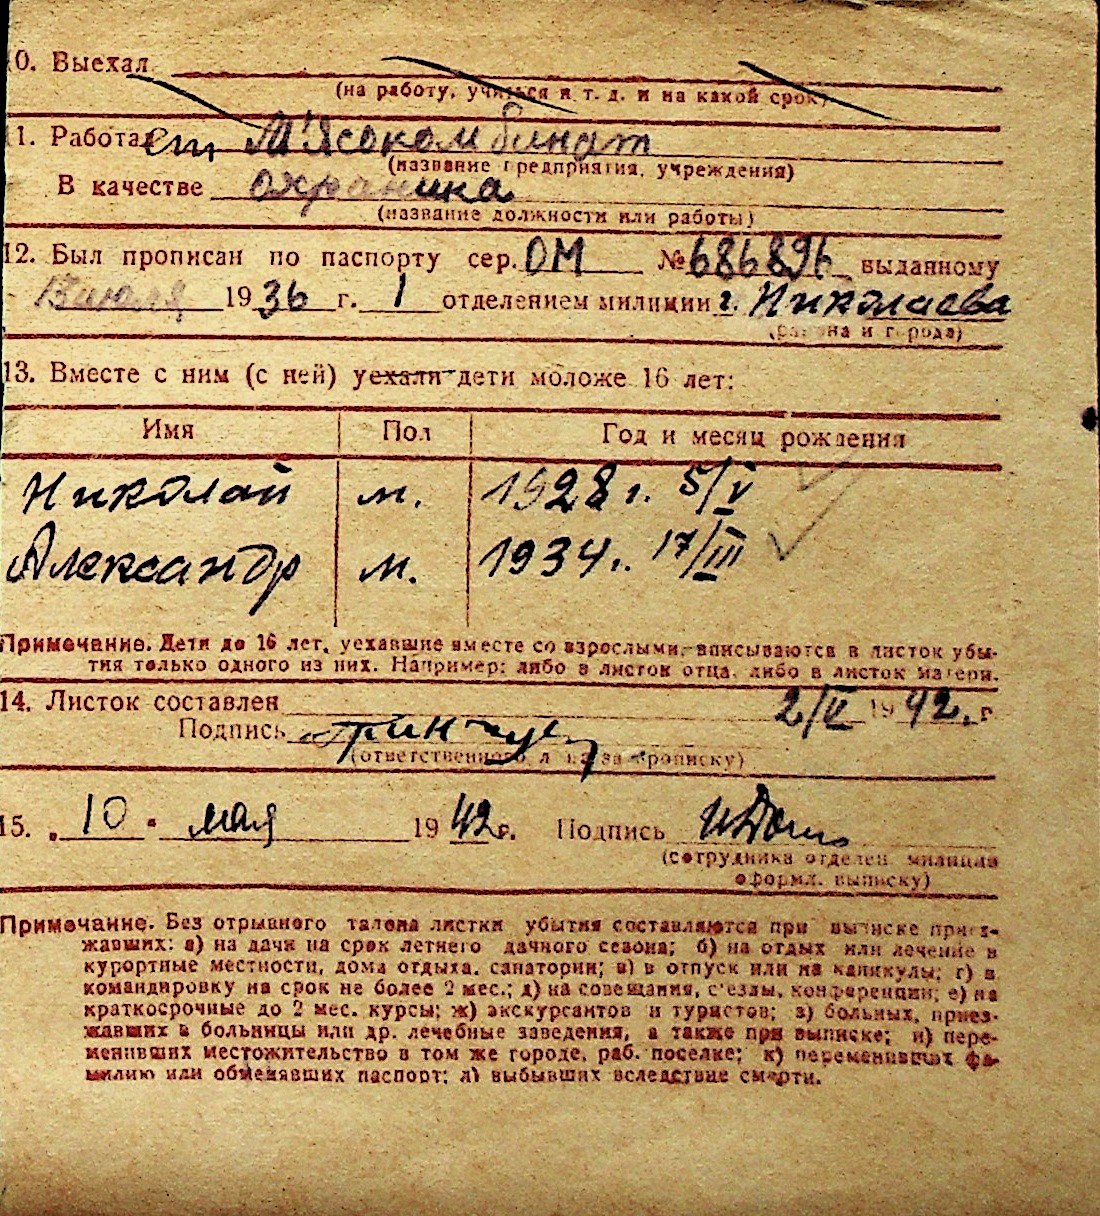 0. Выехал
(на работу, учиться и т. д. и на какой срок)
1. Работает М'ясокомбинат
(название предприятия, учреждения)
В качестве охраника
(название должности или работы)
12. Был прописан по паспорту сер. ОМ № 686896 выданному
13 июля 1936 г. 1 отделением милиции г. Николаева
(района и города)
13. Вместе с ним (с ней) уехали дети моложе 16 лет:
Имя Пол Год и месяц рождения
Николай м. 1928 г. 5/V
Александр м. 1934 г. 17/III
Примечание. Дети до 16 лет, уехавшие вместе со взрослыми, вписываются в листок убы-
тия только одного из них. Например: либо в листок отца, либо в листок матери.
14. Листок составлен 2/V 1942. г.
Подпись
(ответственного лица за прописку)
15. „10" мая 1942 г. Подпись
(сотрудника отделен. милиции
оформл. выписку)
Примечание. Без отрывного талона листки убытия составляются при выписке приез-
жавших: а) на дачи на срок летнего дачного сезона; б) на отдых или лечение в
курортные местности, дома отдыха, санатории; в) в отпуск или на каникулы; г) в
командировку на срок не более 2 мес.; д) на совещания, с'езды, конференции; е) на
краткосрочные до 2 мес. курсы; ж) экскурсантов и туристов; з) больных, приез-
жавших в больницы или др. лечебные заведения, а также при выписке; и) пере-
менивших местожительство в том же городе, раб. поселке; к) переменивших фа-
милию или обменявших паспорт; л) выбывших вследствие смерти.